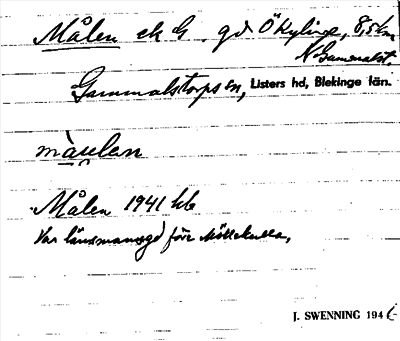 Målen ek G. gd Ö Kylinge, 8,5 km
N Gammalst.
Gammalstorps sn, Listers hd, Blekinge län.
màulen
Målen 1941 kb
Var länsmansgd före Möllekulla,
J. SWENNING 194